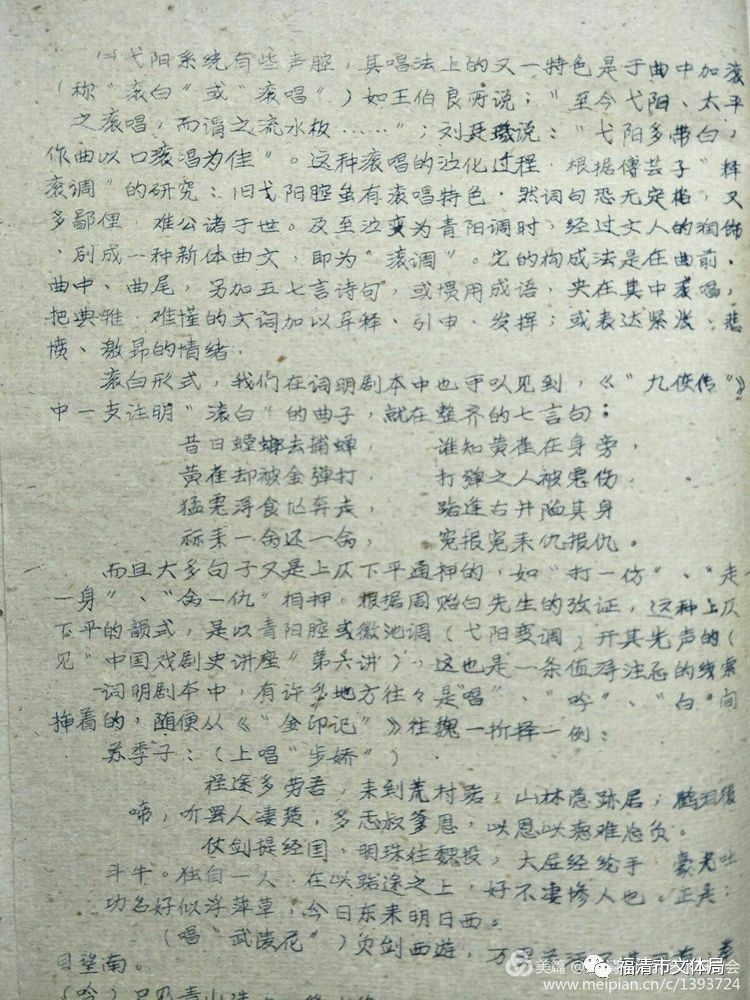 ㈠弋阳系统有些声腔，其唱法上的又一特色是于曲中加滚
（称“滚白”或“滚唱”）如王伯良所说；“至今弋阳、太平
之滚唱，而谓之流水板……”；刘廷玑说：“弋阳多带白，
作曲以口滚唱为佳”。这种滚唱的沿化过程，根据傅芸子“释
滚调”的研究：旧弋阳腔虽有滚唱特色，然词句恐无定格，又
多鄙俚，难公诸于世。及至沿变为青阳调时，经过文人的润饰
，别成一种新体曲文，即为“滚调”。它的构成法是在曲前，
曲中、曲尾，另加五七言诗句，或惯用成语，夹在其中滚唱，
把典雅、难懂的文词加以解释、引申、发挥；或表达紧张、悲
愤、激昂的情绪，
滚白形式，我们在词明剧本中也可以见到，《“九侠传”》
中一支注明“滚白”的曲子，就在整齐的七言句：
昔日螳螂去捕蝉，　　谁知黄雀在身旁，
黄雀却被金弹打，　　打弹之人被虎伤，
猛虎浔食忙奔走，　　踏连古井陷其身
一命还一命，　　冤报冤来仇报仇。
而且大多句子又是上仄下平通押的，如“打一伤”、“走
一身”、“命一仇”相押。根据周贻白先生的考证，这种上仄
下平的韻式，是以青阳腔或徽池调（弋阳变调）开其先声的（
见“中国戏剧史讲座“第六讲），这也是一条值得注意的线索
词明剧本中，有许多地方往々是“唱”、“吟”、“白”间
揷着的，随便从《“金印记”》往魏一折择一例：
苏季子：（上唱“步娇”）
程途多劳吾，未到荒村落，山林隐跡居；鹤泪猿
啼，听罢人凄楚，多忘叔爹恩，此恩此德难忘负。
仗剑提经国，明珠往魏投，大屈经纶手，豪光吐
斗牛。独自一人，在此路途之上，好不凄惨人也。正是：
功名好似浮萍草，今日东来明日西。
（唱“武陵花”）负剑西遊，万里
目望南。
（吟）只见青山
美篇
福清市文体局会
www.meipian.cn/c/1393724